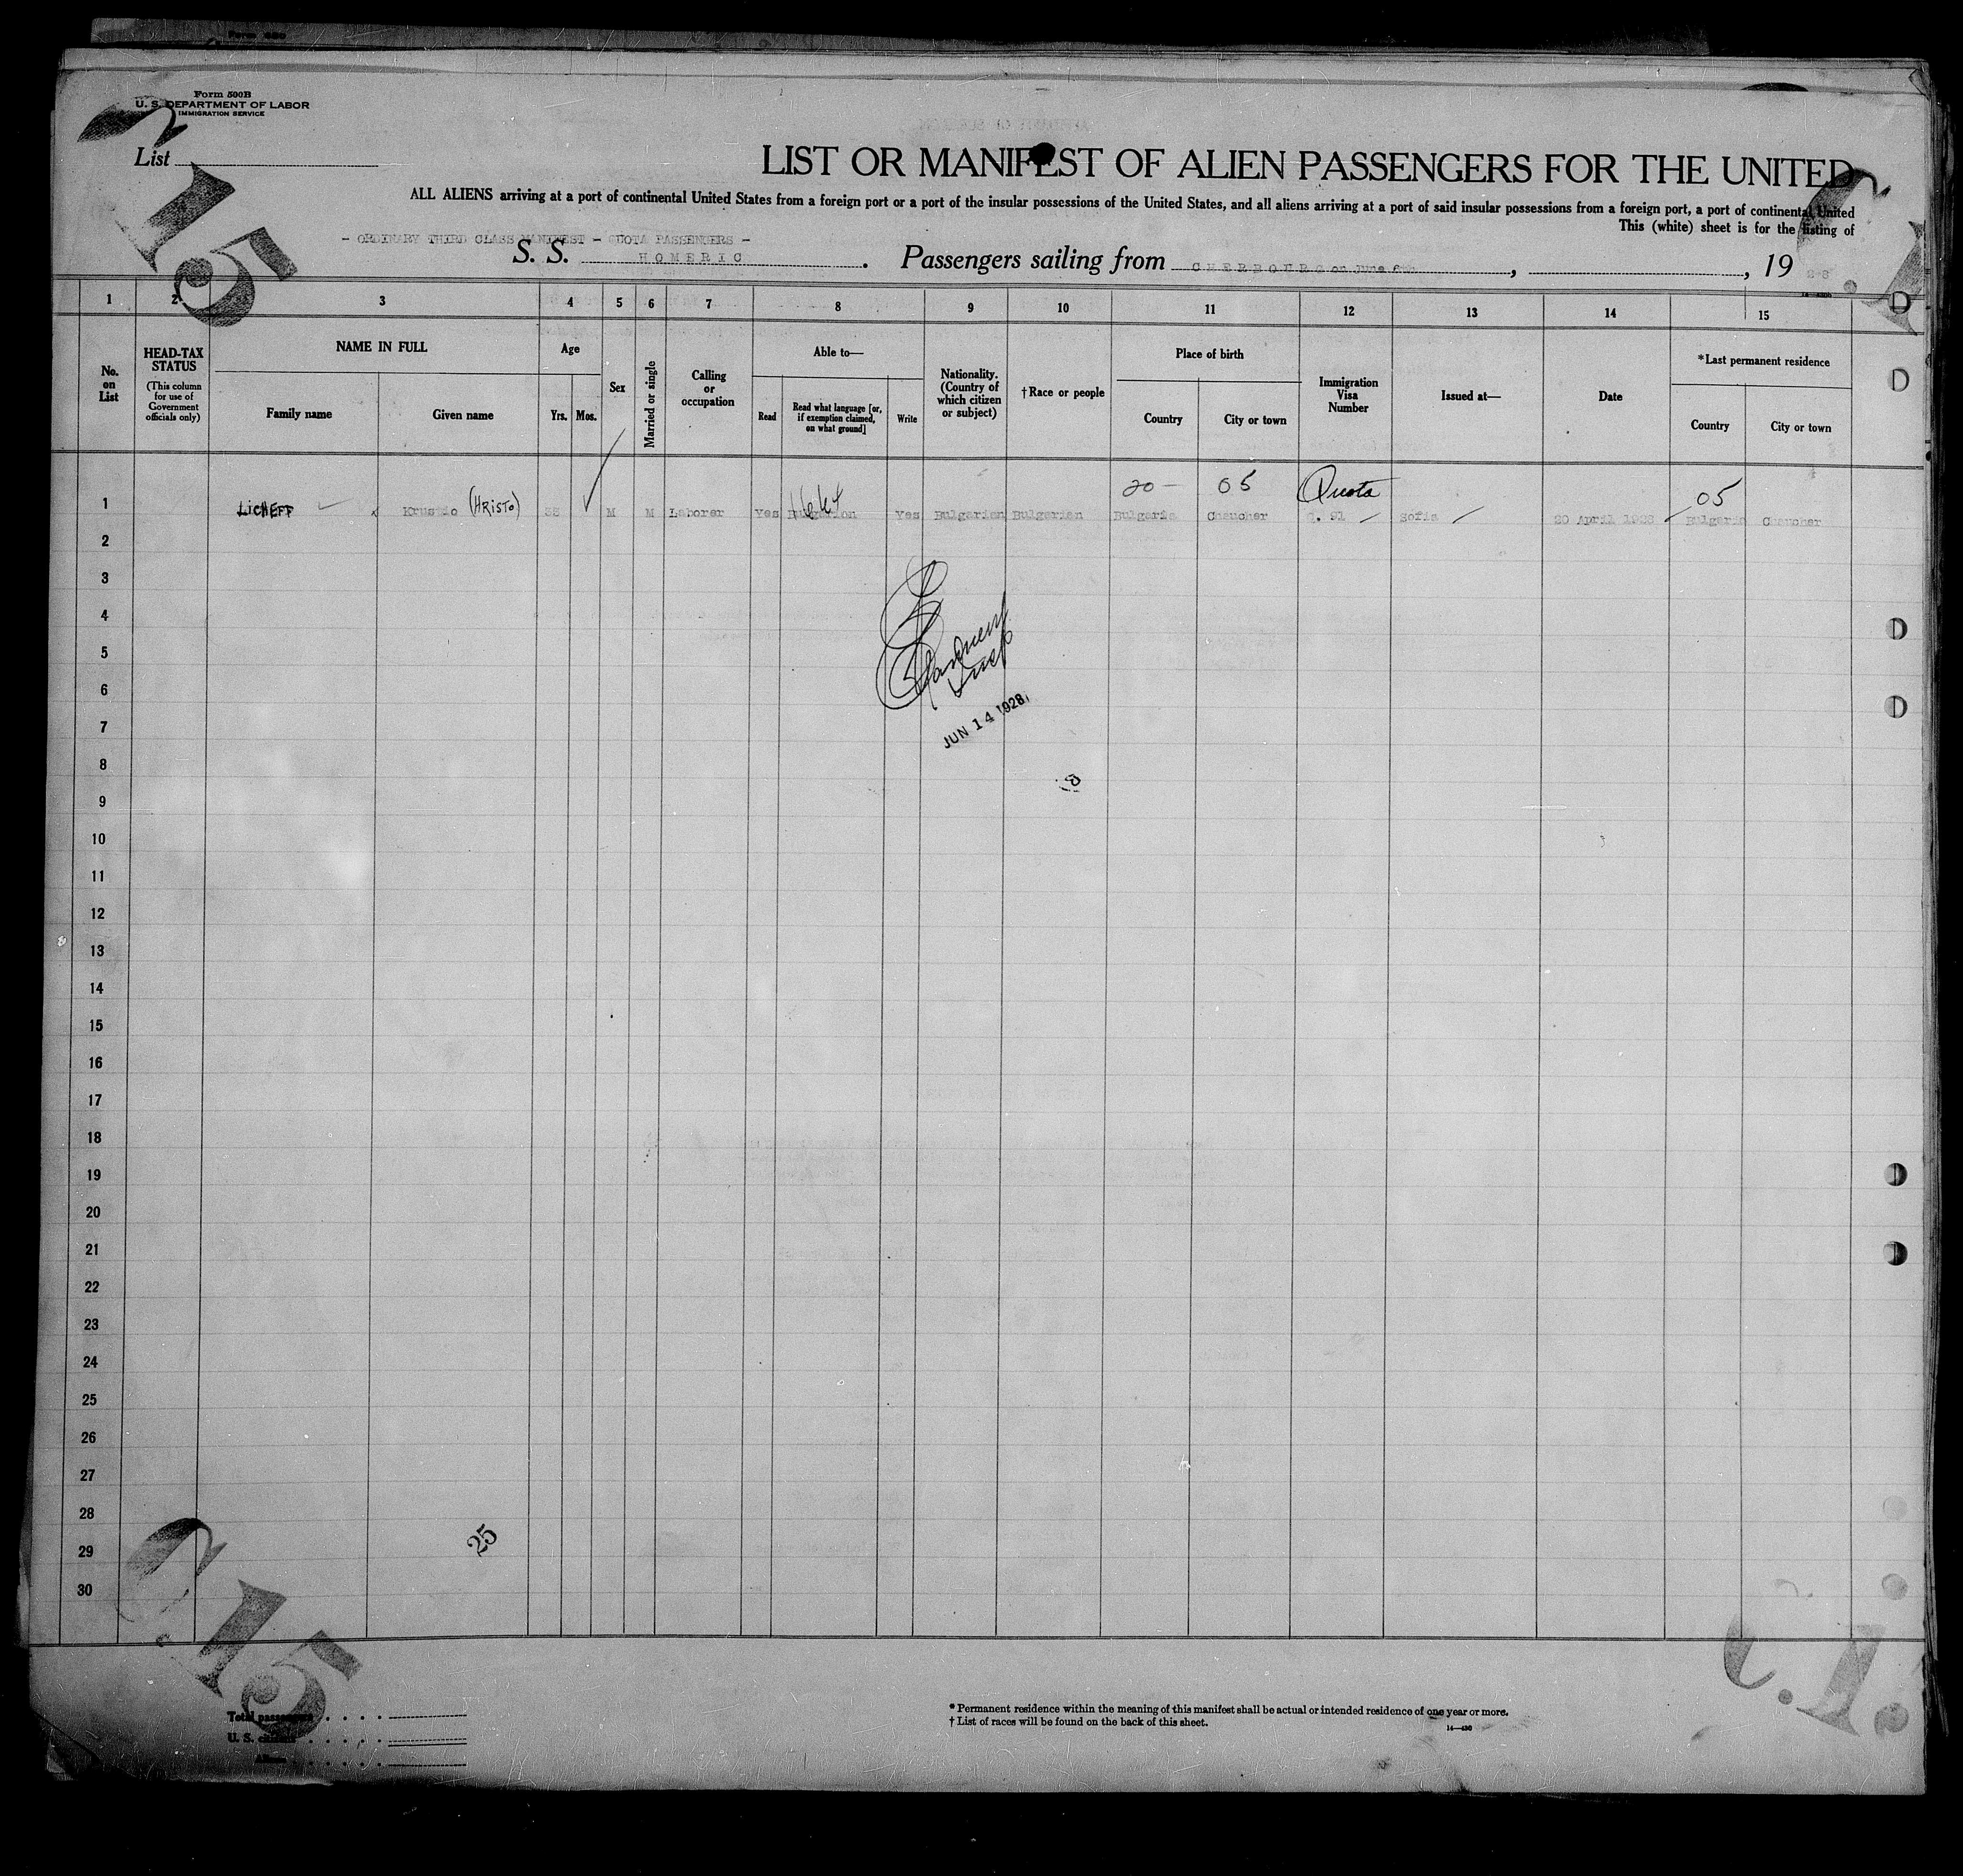 Form 500B
U. S. DEPARTMENT OF LABOR
IMMIGRATION SERVICE
List
15
LIST OR MANIFEST OF ALIEN PASSENGERS FOR THE UNITED
ALL ALIENS arriving at a port of continental United States from a foreign port or a port of the insular possessions of the United States, and all aliens arriving at a port of said insular possessions from a foreign port, a port of continental United
This (white) sheet is for the listing of
- ORDINARY THIRD CLASS MANIFEST - QUOTA PASSENGERS -
S. S. HOMERIC. Passengers sailing from CHERBOURG on June, , 19 28
1 2 3 4 5 6 7 8 9 10 11 12 13 14 15
No. on List
HEAD-TAX STATUS
(This column for use of Government officials only)
NAME IN FULL
Family name
Given name
Age
Yrs. Mos.
Sex
Married or single
Calling or occupation
Able to—
Read
Read what language [or, if exemption claimed, on what ground]
Write
Nationality. (Country of which citizen or subject)
†Race or people
Place of birth
Country
City or town
Immigration Visa Number
Issued at—
Date
*Last permanent residence
Country
City or town
20- 05 Quota 05
1 LICHEFF (HRISTO) M M Laborer Yes Bulgarian Yes Bulgarian Bulgarian Bulgaria Chaucher Q. 91 Sofia 20 April 1928 Bulgaria Chaucher
2
3
4
5
6
7
JUN 14 1928
8
9
10
11
12
13
14
15
16
17
18
19
20
21
22
23
24
25
26
27
28
29
25
30
15
Total passengers
U. S. citizens
Aliens
* Permanent residence within the meaning of this manifest shall be actual or intended residence of one year or more.
† List of races will be found on the back of this sheet.
14—430